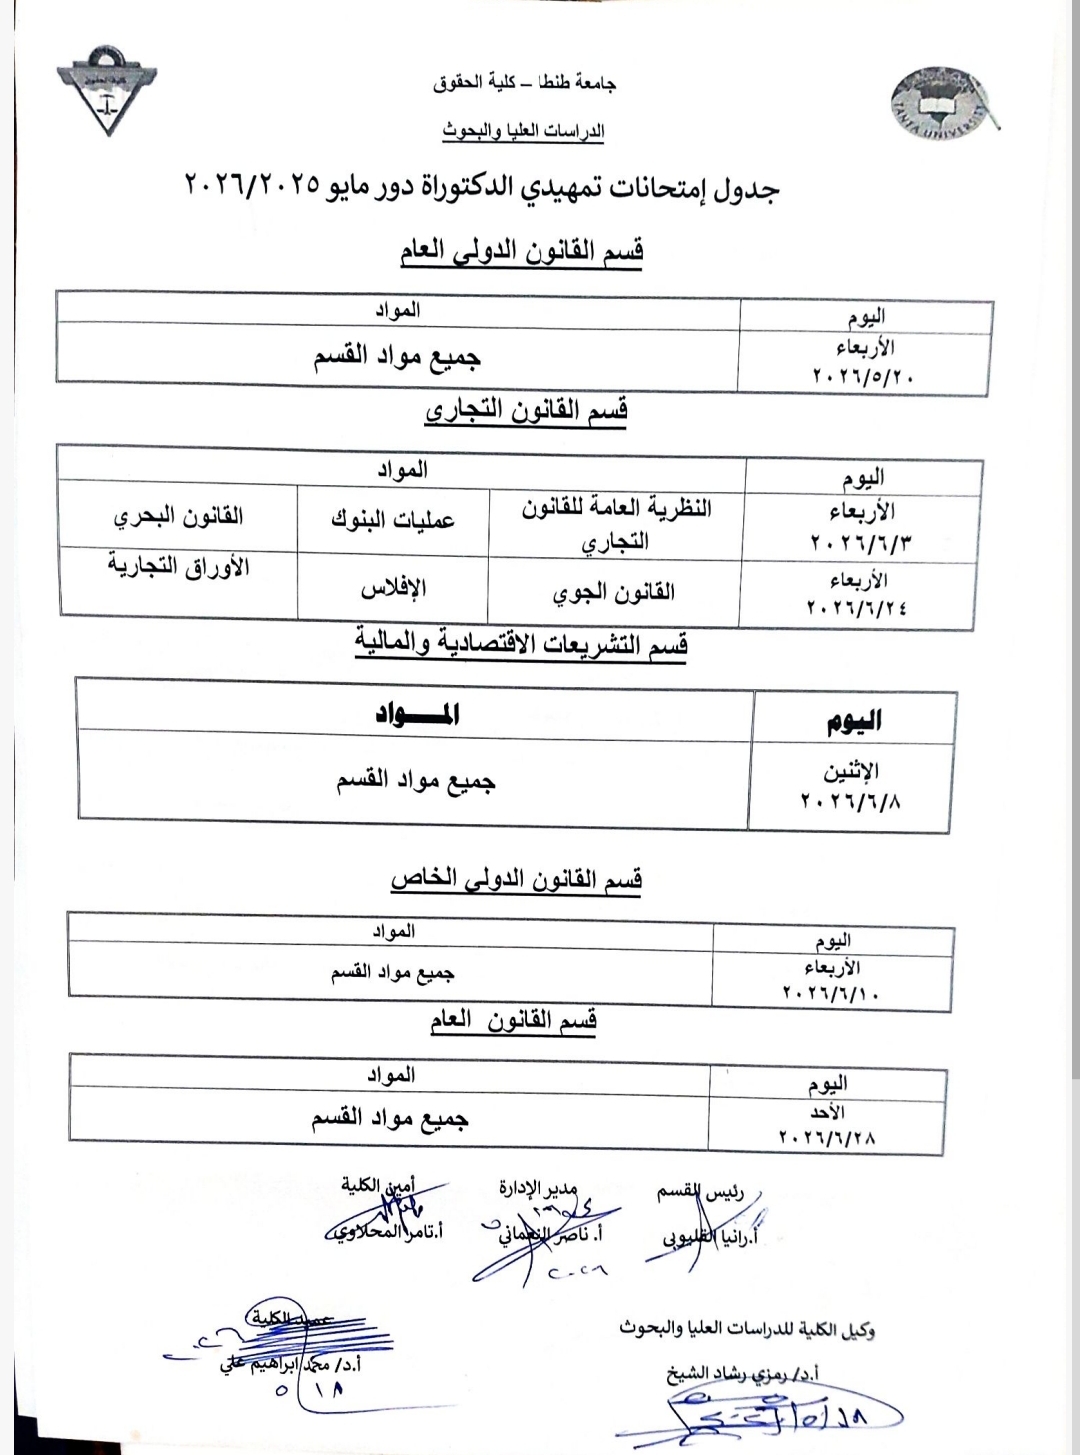 كلية الحقوق
TANTA UNIVERSITY
جامعة طنطا – كلية الحقوق
الدراسات العليا والبحوث
جدول إمتحانات تمهيدي الدكتوراة دور مايو ٢٠٢٦/٢٠٢٥
قسم القانون الدولي العام
اليوم المواد
الأربعاء
٢٠٢٦/٥/٢٠ جميع مواد القسم
قسم القانون التجاري
اليوم المواد
الأربعاء
٢٠٢٦/٦/٣ النظرية العامة للقانون
التجاري عمليات البنوك القانون البحري
الأربعاء
٢٠٢٦/٦/٢٤ القانون الجوي الإفلاس الأوراق التجارية
قسم التشريعات الاقتصادية والمالية
اليوم المـــواد
الإثنين
٢٠٢٦/٦/٨ جميع مواد القسم
قسم القانون الدولي الخاص
اليوم المواد
الأربعاء
٢٠٢٦/٦/١٠ جميع مواد القسم
قسم القانون العام
اليوم المواد
الأحد
٢٠٢٦/٦/٢٨ جميع مواد القسم
رئيس القسم مدير الإدارة أمين الكلية
أ.رانيا القليوبى أ. ناصر النعماني أ.تامر المحلاوي
وكيل الكلية للدراسات العليا والبحوث عميد الكلية
أ.د/ رمزي رشاد الشيخ أ.د/ محمد ابراهيم علي